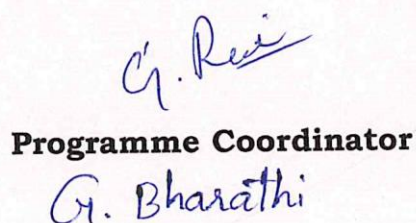 G. Ravi
Programme Coordinator
G. Bharathi